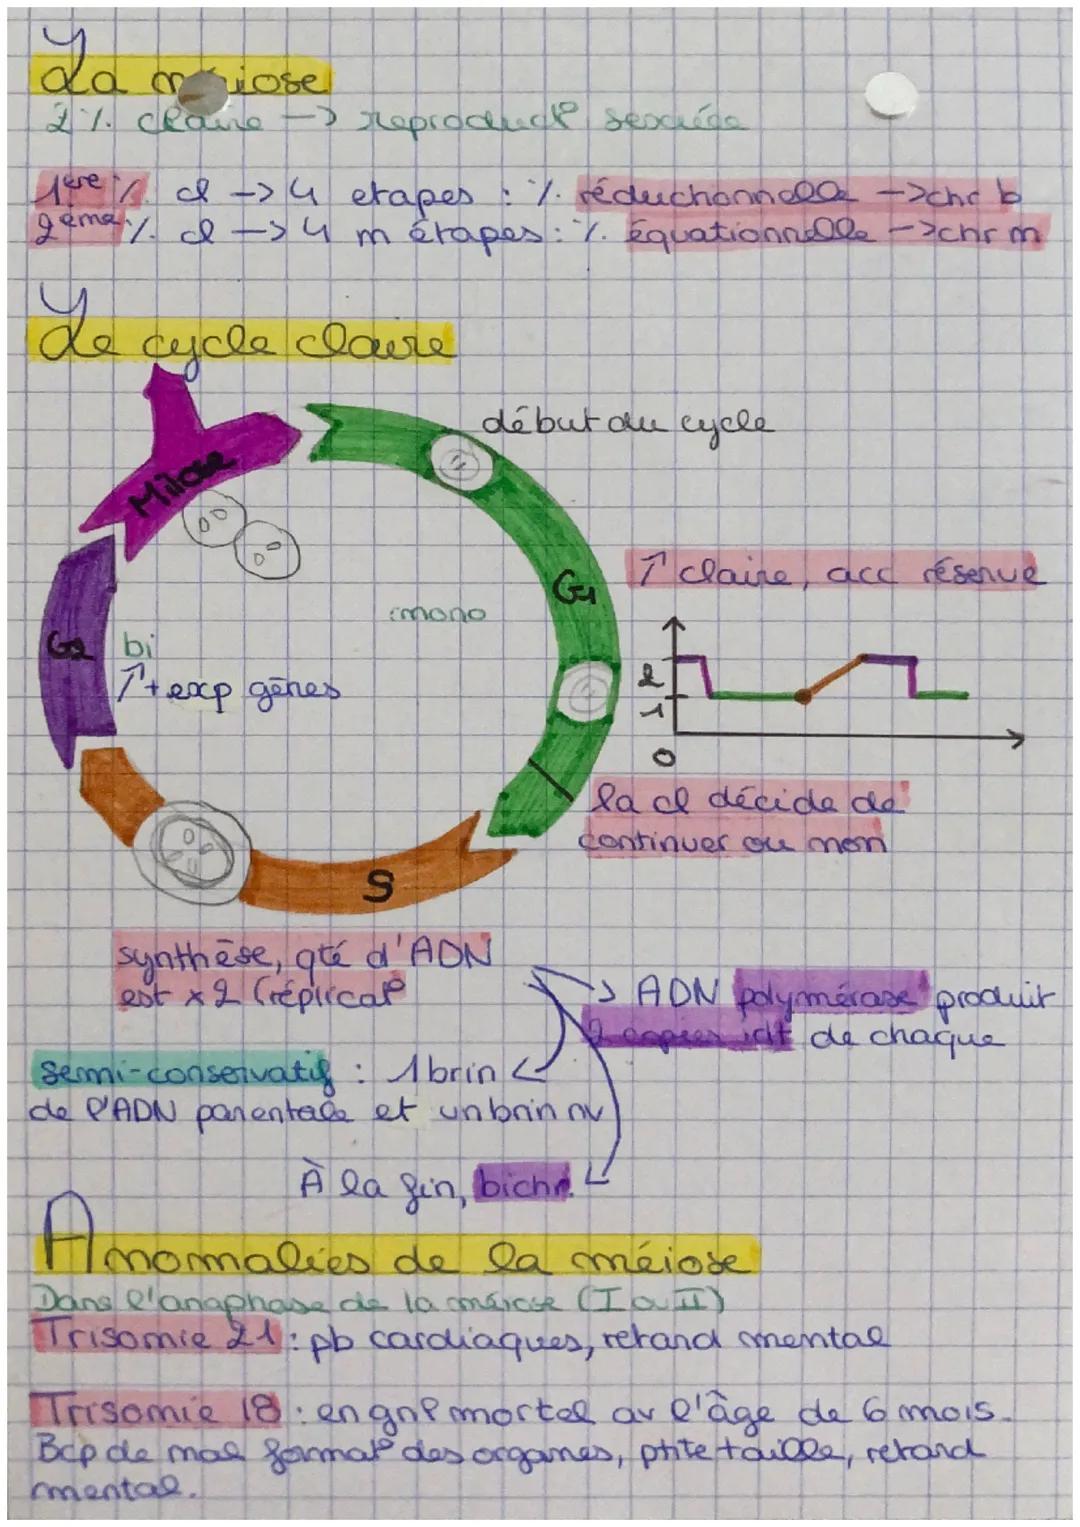 La méiose
2 %. claire -> reproduct° sexuée
1ère %. cl -> 4 etapes : %. réductionnelle -> chr b
2ème %. cl -> 4 m étapes : %. équationnelle -> chr m
Le cycle claire
début du cycle
Mitose
G1
↑ claire, acc réserve
mono
G2
bi
↑ + exp gènes
2
1
0
la cl décide de
continuer ou non
S
synthèse, qté d'ADN
est x2 (réplicat°
-> ADN polymérase produit
2 copies idt de chaque
semi-conservatif : 1 brin
de l'ADN parentale et un brin nv
À la fin, bichr.
Anomalies de la méiose
Dans l'anaphase de la méiose (I ou II)
Trisomie 21 : pb cardiaques, retard mental
Trisomie 18 : en gn° mortel av l'âge de 6 mois.
Bcp de mal format° des organes, ptite taille, retard
mental.